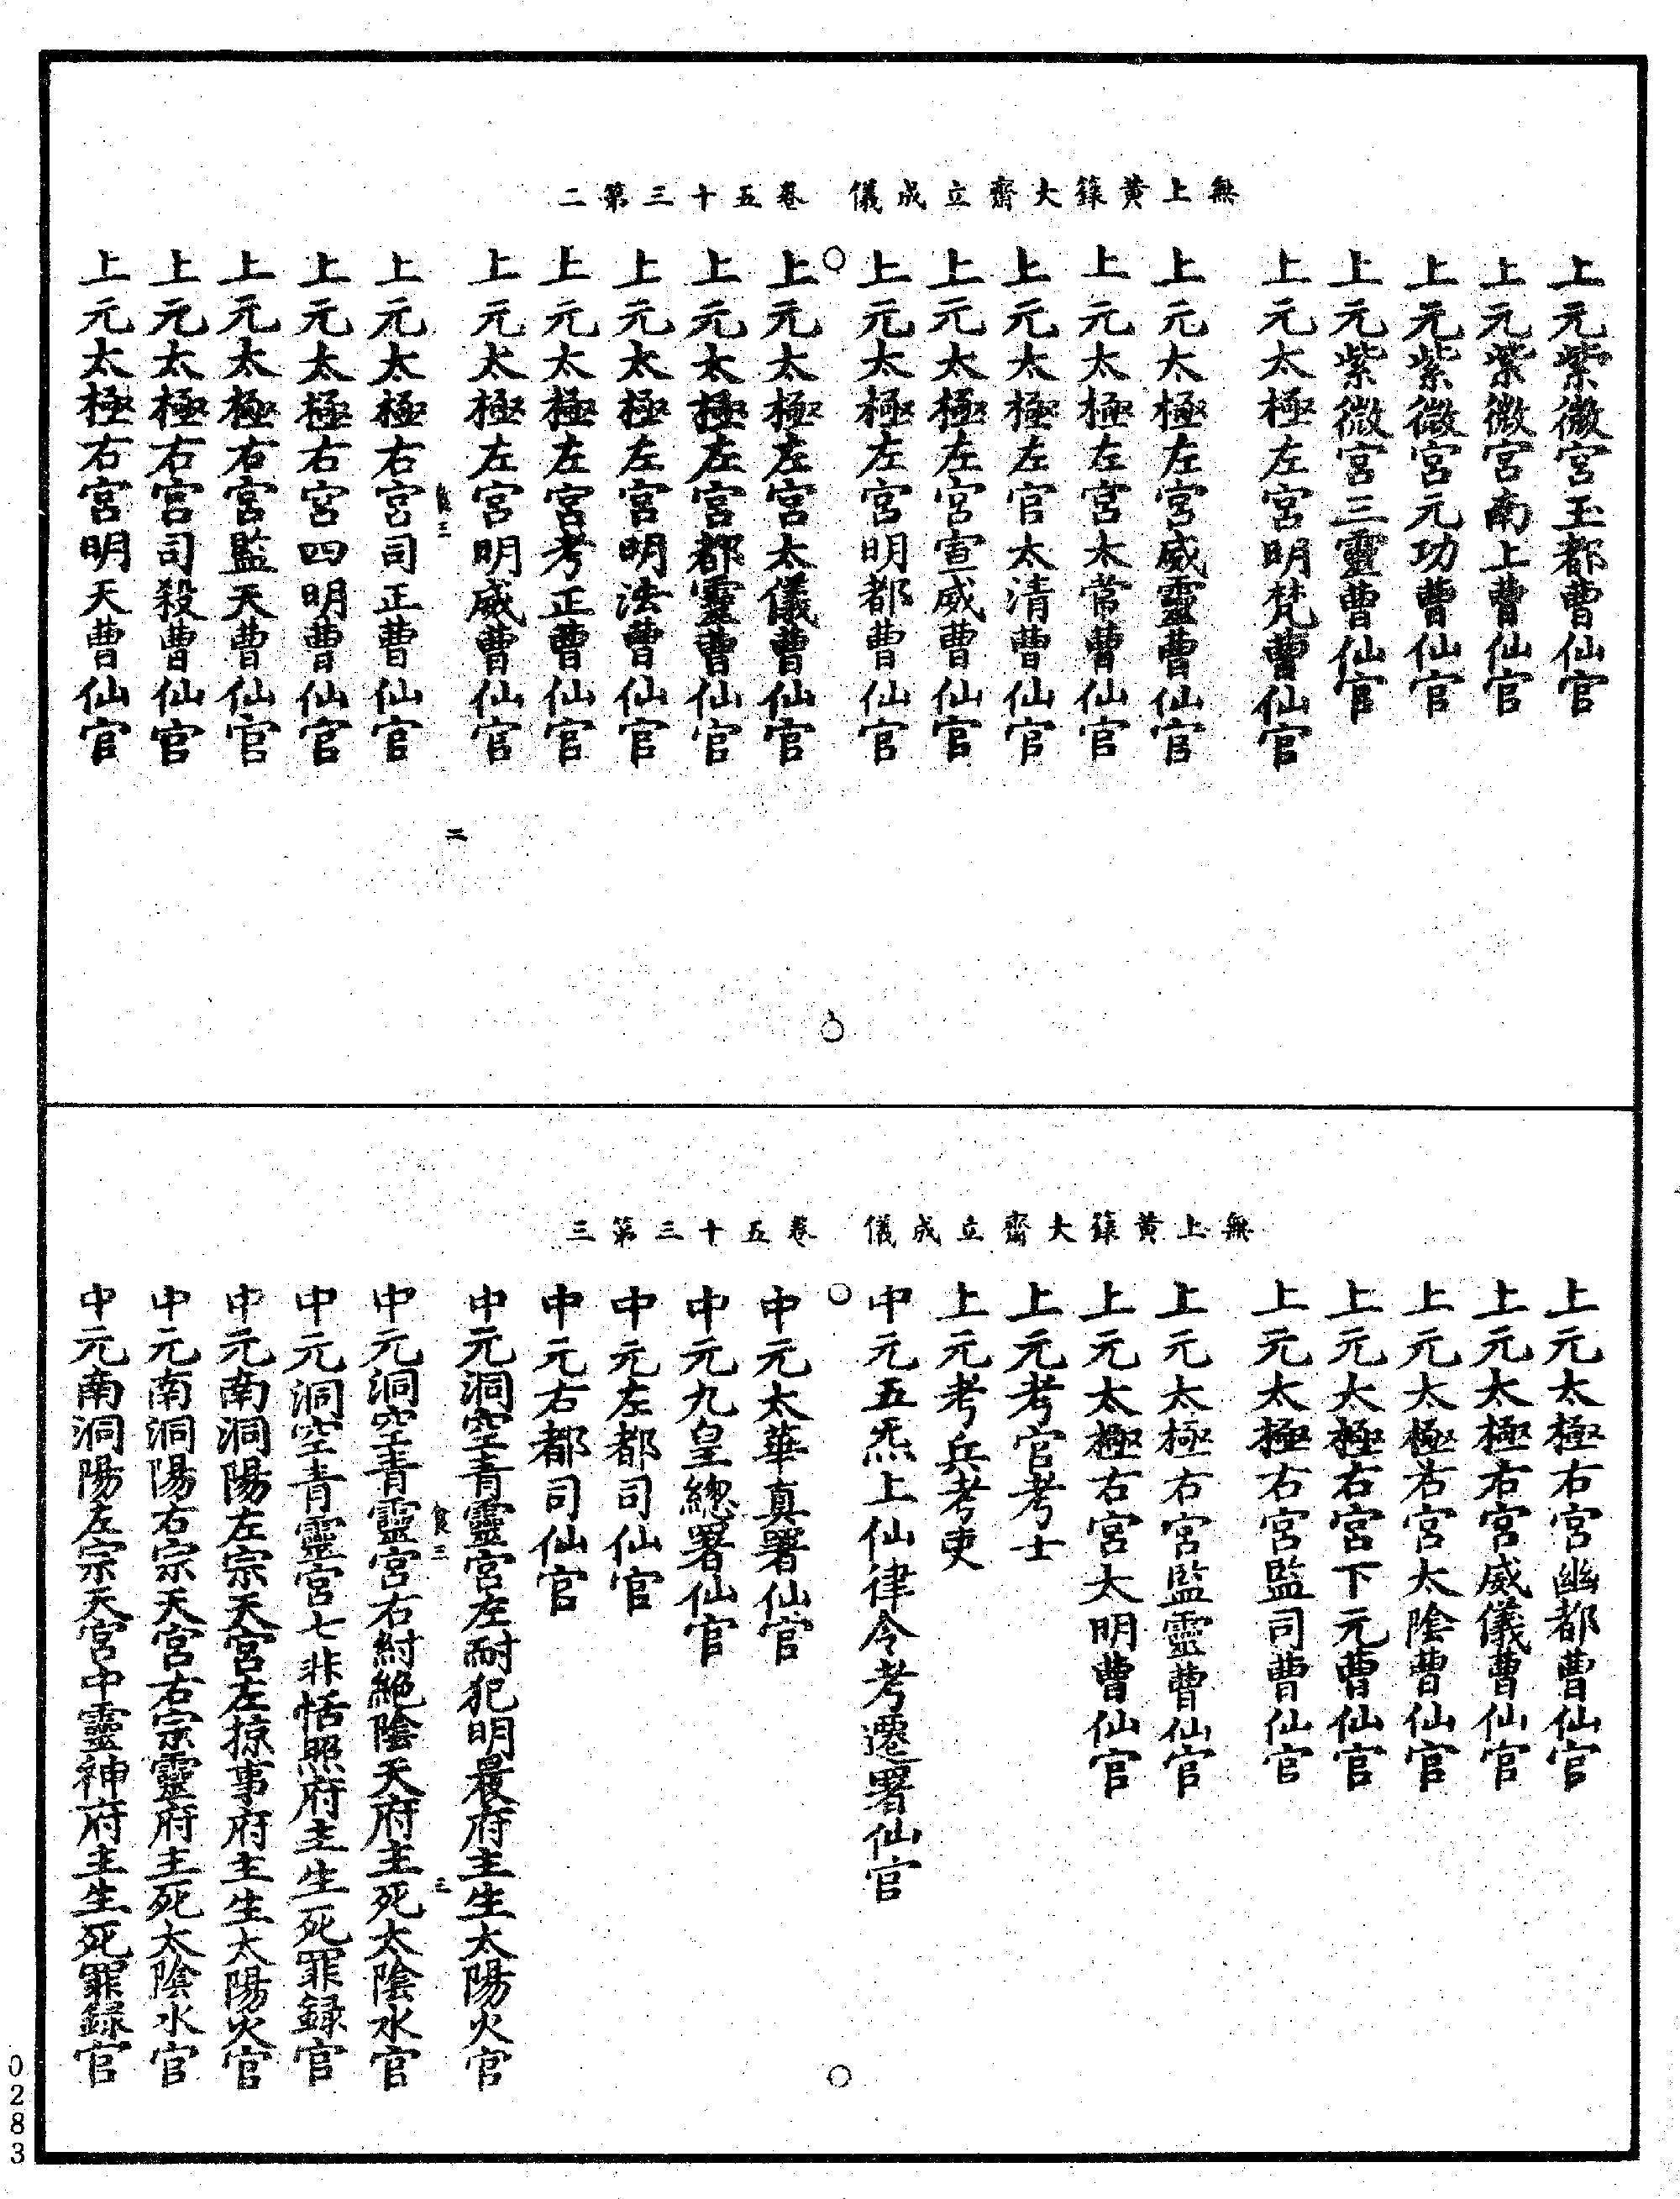 無上黃籙大齋立成儀 卷五十三第二
上元紫微宮玉都曹仙官
上元紫微宮南上曹仙官
上元紫微宮元功曹仙官
上元紫微宮三靈曹仙官
上元太極左宮明梵曹仙官
上元太極左宮威靈曹仙官
上元太極左宮太常曹仙官
上元太極左官太清曹仙官
上元太極左宮宣威曹仙官
上元太極左宮明都曹仙官
上元太極左宮太儀曹仙官
上元太極左宮都靈曹仙官
上元太極左宮明法曹仙官
上元太極左宮考正曹仙官
上元太極左宮明威曹仙官
二
上元太極右宮司正曹仙官
上元太極右宮四明曹仙官
上元太極右宮監天曹仙官
上元太極右宮司殺曹仙官
上元太極右宮明天曹仙官
無上黃籙大齋立成儀 卷五十三第三
上元太極右宮幽都曹仙官
上元太極右宮威儀曹仙官
上元太極右宮太陰曹仙官
上元太極右宮下元曹仙官
上元太極右宮監司曹仙官
上元太極右宮監靈曹仙官
上元太極右宮太明曹仙官
上元考官考士
上元考兵考吏
中元五炁上仙律令考遷署仙官
中元太華真署仙官
中元九皇總署仙官
中元左都司仙官
中元右都司仙官
中元洞空青靈宮左耐犯明晨府主生太陽火官
食三
三
中元洞空青靈宮右紂絕陰天府主死太陰水官
中元洞空青靈宮七非恬照府主生死罪録官
中元南洞陽左宗天宮左掠事府主生太陽火官
中元南洞陽右宗天宮右宗靈府主死太陰水官
中元南洞陽左宗天宮中靈神府主生死罪録官
0283